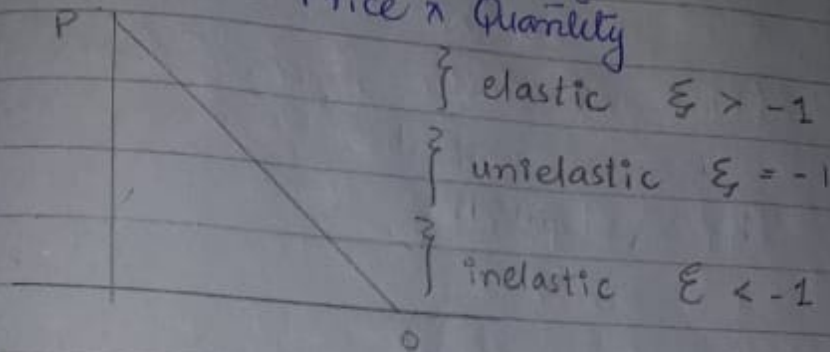 Price x Quantity
P
} elastic ξ > -1
} unielastic ξ = -1
} inelastic ξ < -1
Q